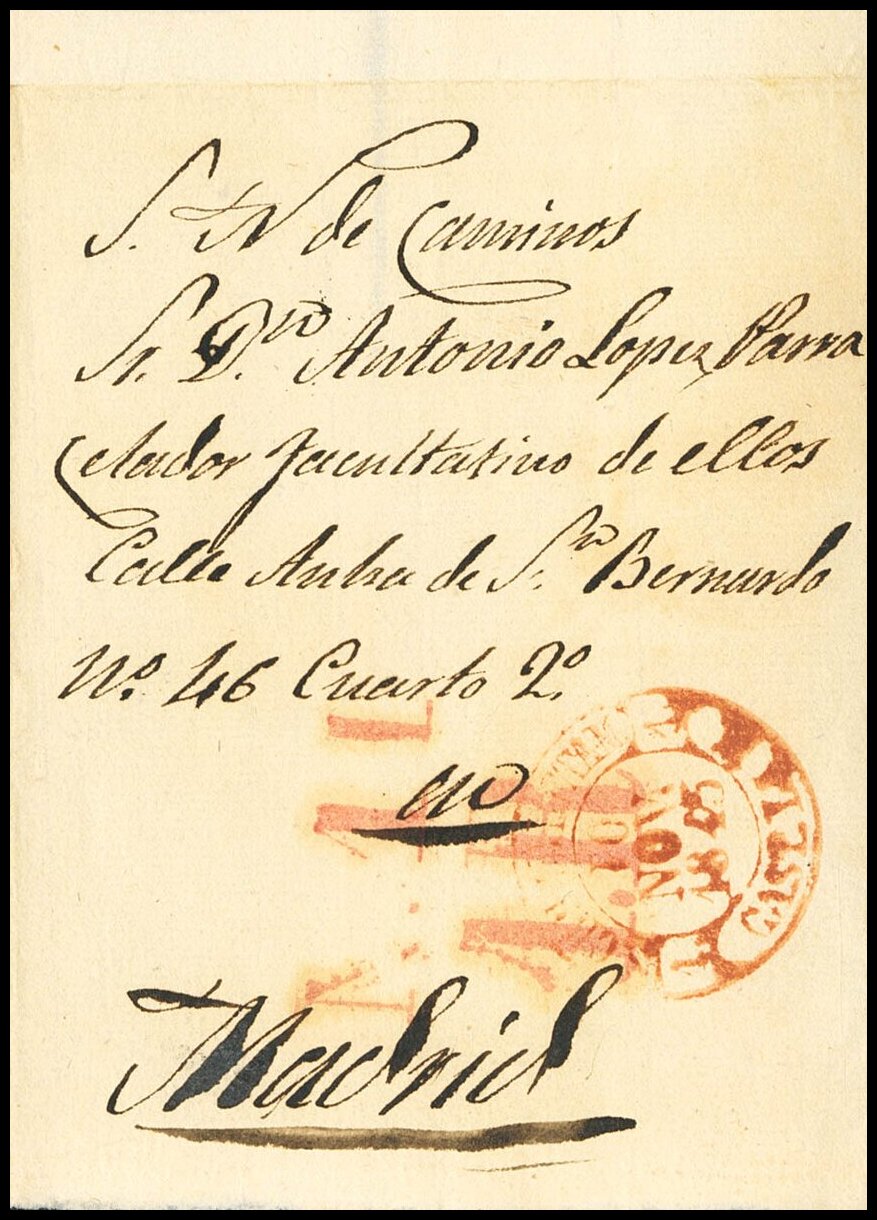 S. N de Caminos
Sr. D.n Antonio Lopez Parra
Celador facultativo de ellos
Calle Ancha de S.n Bernardo
Nº 46 Cuarto 2º
en
Madrid
NOV